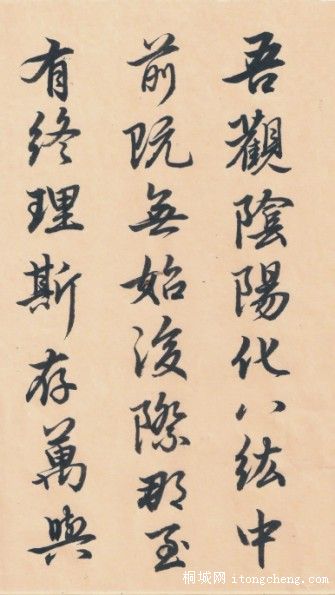 吾觀陰陽化八紘中
前既無始後際那至
有終理斯存萬與
桐城网 itongcheng.com